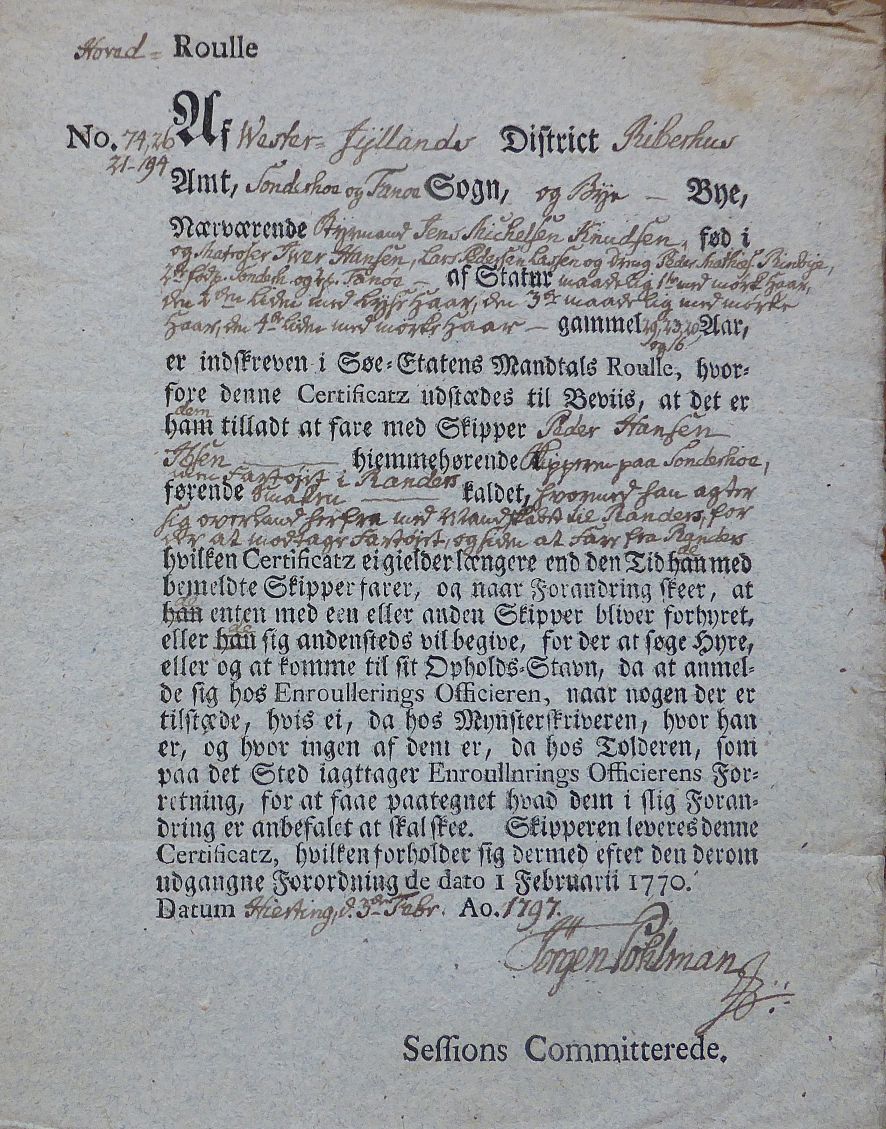 Hoved= Roulle
No. 74, 26
21-194
Af Wester= Jyllands District Riberhus
Amt, Sonderhoe og Fanoe Sogn, og Bÿe — Bye,
Nærværende Styrmand Jens Michelsen Knudsen, fød i
og Matroser Iver Hansen, Lars Pedersen Lassen og Dreng Peder Mathies Rindbye,
Sonderh. og Fanöe — af Statur maadelig 1ste med mørk Haar,
den 2den liden med lyse Haar, den 3de maadelig med mørke
Haar, den 4de liden med mørke Haar — gammel 29, 23, 20 Aar,
og 16
er indskreven i Søe-Etatens Mandtals Roulle, hvor-
fore denne Certificatz udstædes til Beviis, at det er
dem
ham tilladt at fare med Skipper Peder Hansen
Ibsen — hiemmehørende Skipperen paa Sonderhoe,
Fartøjet i Randers
førende Smakken — kaldet, hvormed han agter
sig overland herfra med Mandskabet til Randers, for
der at modtage Fartøjet, og siden at fare fra Randers
de
hvilken Certificatz ei gielder længere end den Tid han med
bemeldte Skipper farer, og naar Forandring skeer, at
de
han enten med een eller anden Skipper bliver forhyret,
de
eller han sig andensteds vil begive, for der at søge Hyre,
eller og at komme til sit Opholds-Stavn, da at anmel-
de sig hos Enroullerings Officieren, naar nogen der er
tilstæde, hvis ei, da hos Mynsterskriveren, hvor han
er, og hvor ingen af dem er, da hos Tolderen, som
paa det Sted iagttager Enroullnrings Officierens For-
retning, for at faae paategnet hvad dem i slig Foran-
dring er anbefalet at skal skee. Skipperen leveres denne
Certificatz, hvilken forholder sig dermed efter den derom
udgangne Forordning de dato 1 Februarii 1770.
Datum Hierting, d. 3de Febr. Ao. 1797.
Jörgen Pohlman
Sessions Committerede.